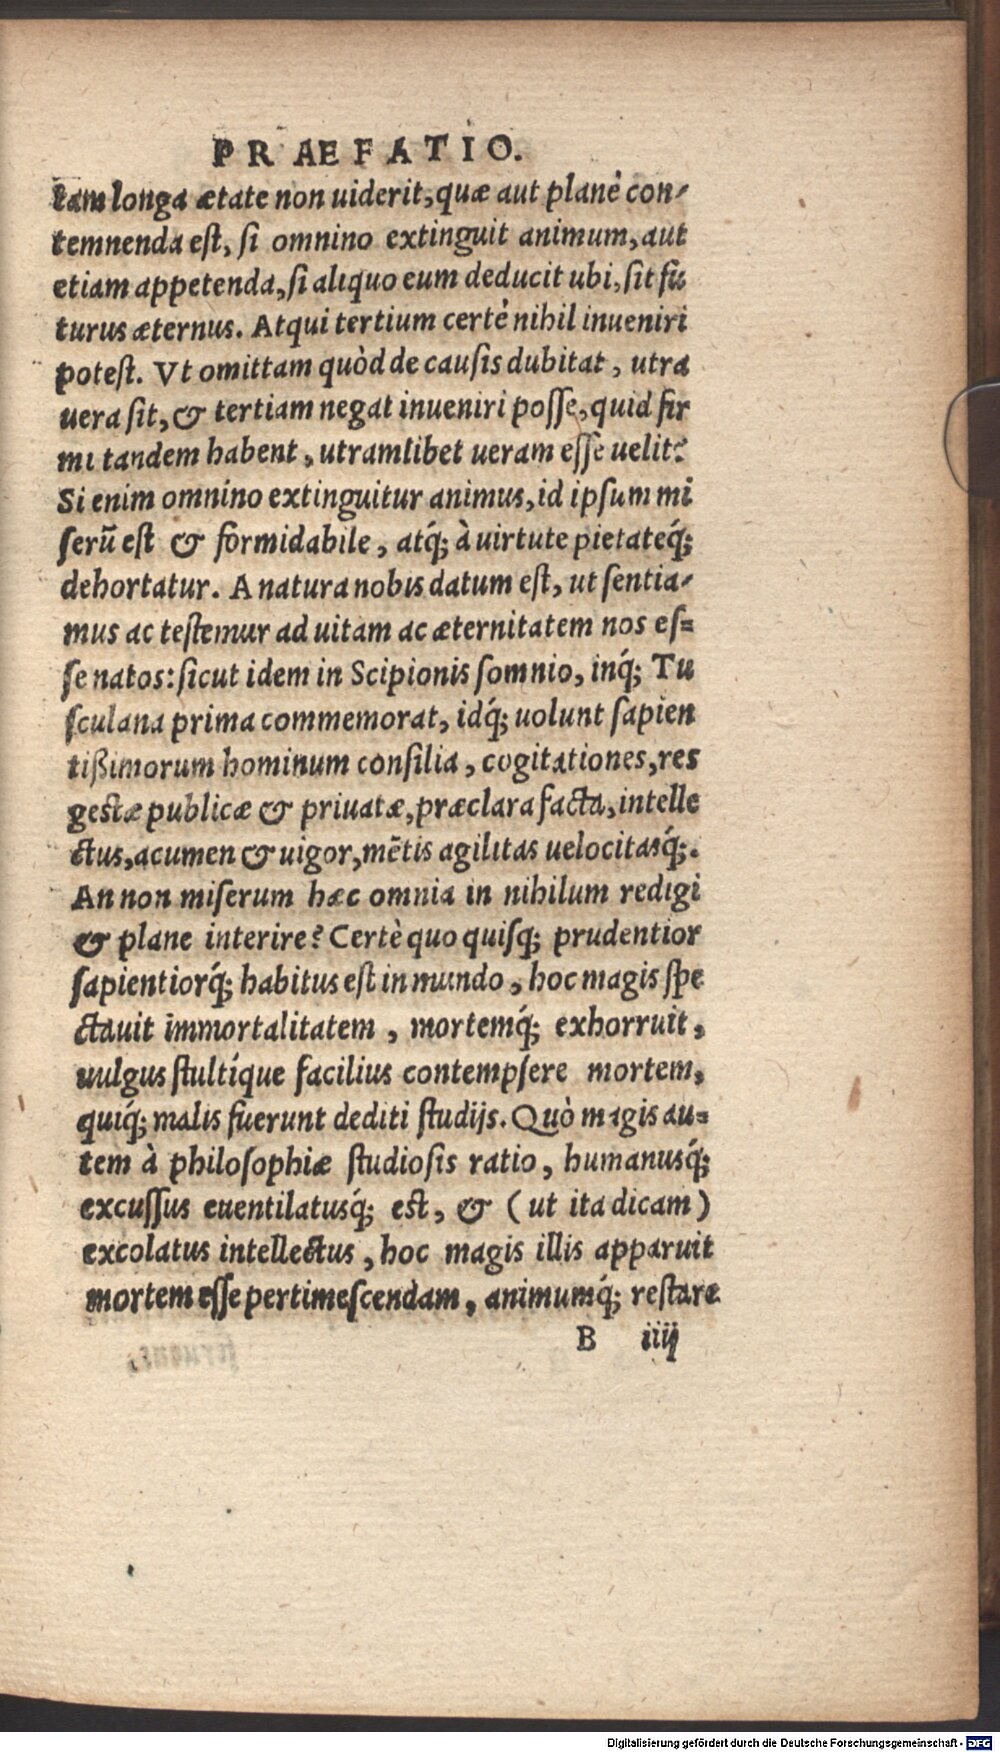 PRAEFATIO.
tam longa ætate non uiderit, quæ aut planè con-
temnenda est, si omnino extinguit animum, aut
etiam appetenda, si aliquo eum deducit ubi, sit fu
turus æternus. Atqui tertium certè nihil inueniri
potest. Vt omittam quòd de causis dubitat, utra
uera sit, & tertiam negat inueniri posse, quid fir
mi tandem habent, utramlibet ueram esse uelit?
Si enim omnino extinguitur animus, id ipsum mi
serũ est & formidabile, atq́; à uirtute pietateq́;
dehortatur. A natura nobis datum est, ut sentia-
mus ac testemur ad uitam ac æternitatem nos es=
se natos: sicut idem in Scipionis somnio, inq́; Tu
sculana prima commemorat, idq́; uolunt sapien
tißimorum hominum consilia, cogitationes, res
gestæ publicæ & priuatæ, præclara facta, intelle
ctus, acumen & uigor, mẽtis agilitas uelocitasq́;.
An non miserum hæc omnia in nihilum redigi
& plane interire? Certè quo quisq; prudentior
sapientiorq́; habitus est in mundo, hoc magis spe
ctauit immortalitatem, mortemq́; exhorruit,
uulgus stultíque facilius contempsere mortem,
quiq́; malis fuerunt dediti studijs. Quò magis au=
tem à philosophiæ studiosis ratio, humanusq́;
excussus euentilatusq́; est, & (ut ita dicam)
excolatus intellectus, hoc magis illis apparuit
mortem esse pertimescendam, animumq́; restare
B iiij
Digitalisierung gefördert durch die Deutsche Forschungsgemeinschaft - DFG